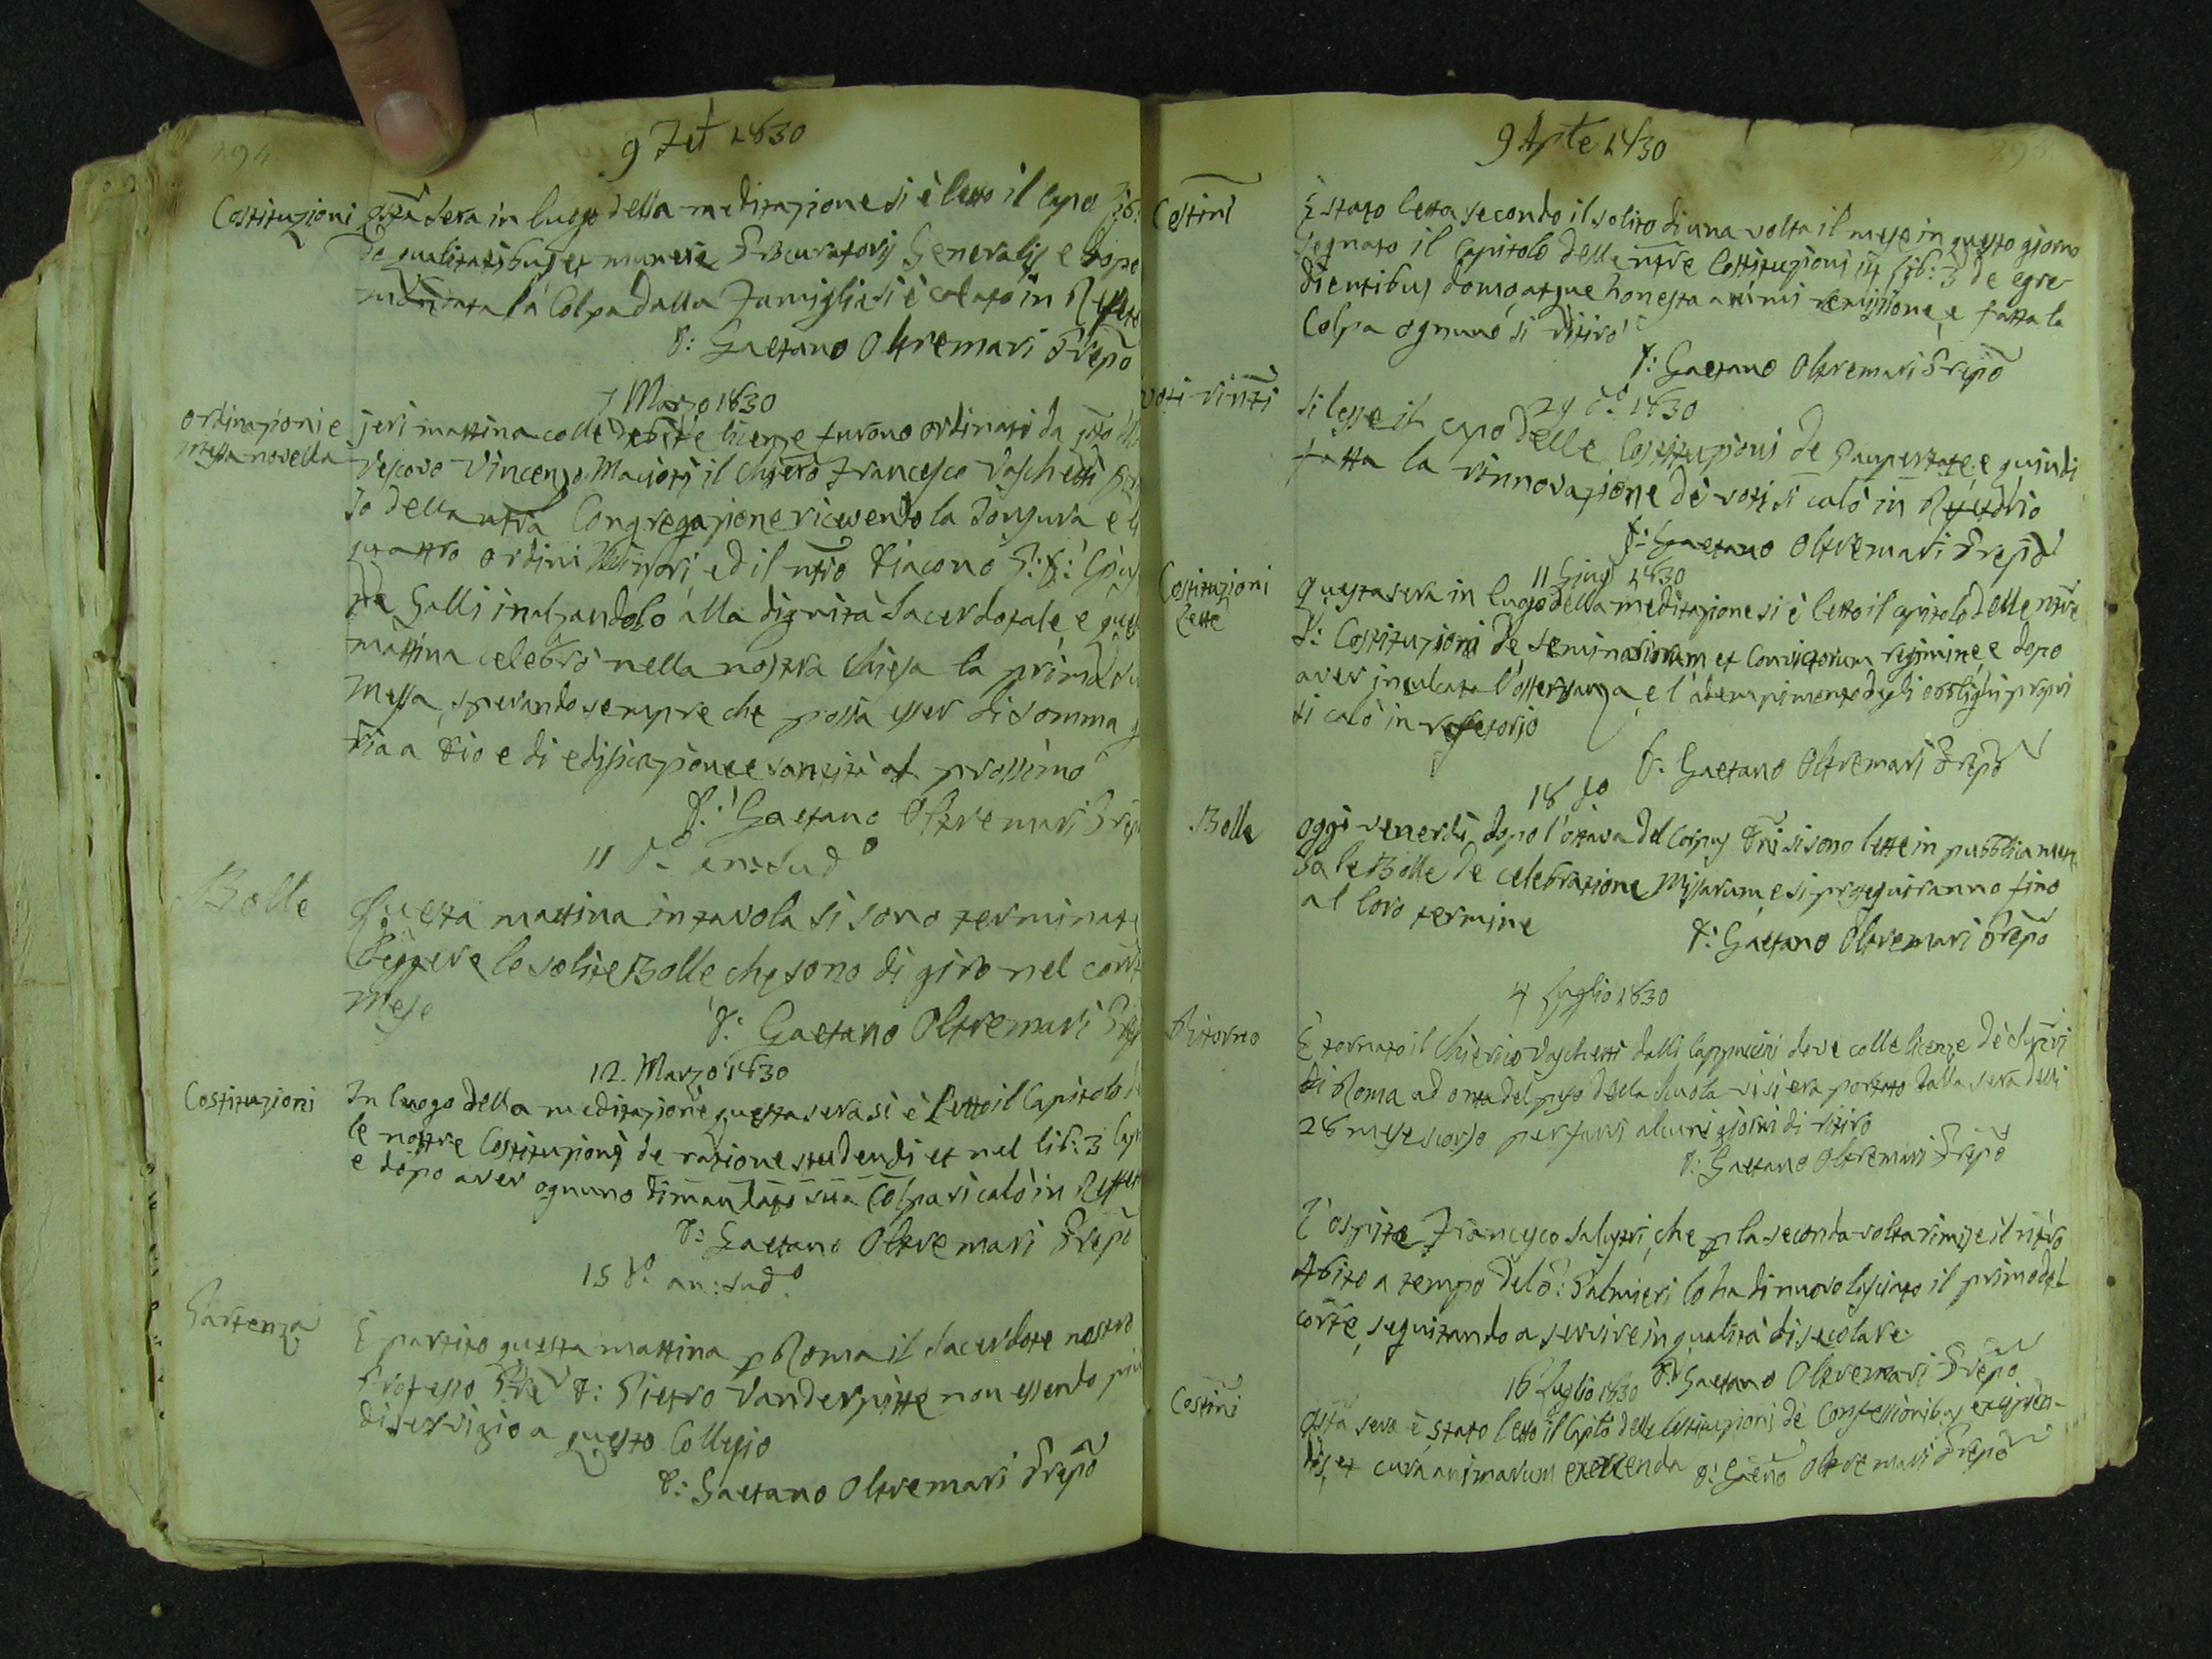 294
9 Feb 1830
Costituzioni qsta sera in luogo della meditazione si è letto il capo lib:
De qualitatibus et munere Procuratoris Generalis e dopo
la Colpa dalla Famiglia si è calato in
D: Gaetano Oltremari Prepo
7 Marzo 1830
ordinazioni e jeri mattina colle debite licenze furono ordinati da qsto
messa novella Vescovo Vincenzo Macioti il chierco Francesco Vaschetti
so della ntra Congregazione ricevendo la Tonsura e li
quattro ordini Minori ed il ntro Diacono P: D:
Galli inalzandolo alla dignità Sacerdotale, e
mattina celebrò nella nostra chiesa la prima
messa, sperando sempre che possa esser di somma
ria a Dio e di edificazione e santità al prossimo
D: Gaetano Oltremari
11 do an: sudo
Bolle Questa mattina in tavola si sono terminate
leggere le solite Bolle che sono di giro nel
mese
D: Gaetano Oltremari
12. Marzo 1830
Costituzioni In luogo della meditazione questa sera si è letto il Capitolo
le nostre Costituzioni de ratione studendi et nel lib: 3
e dopo aver ognuno dimandato sua Colpa si calò in
D: Gaetano Oltremari Prepo
15 do an: sudo
Partenza È partito questa mattina p Roma il Sacerdote nostro
Professo Pre D: Pietro Vanderpitte non essendo più
di servigio a questo Collegio
D: Gaetano Oltremari Prepo
295
9 Aple 1830
Costini È stato letto secondo il solito di una volta il mese in questo giorno
segnato il Capitolo delle ntre Costituzioni lib: 3 de egre-
dientibus domo, atque honesta animi remissione, e fatta la
Colpa ognuno si ritirò
D: Gaetano Oltremari Prepo
29 do 1830
voti rinti si lesse il capo delle Costituzioni de Paupertate e quindi
fatta la rinnovazione de' voti si calò in
D: Gaetano Oltremari Prepo
11 Giug 1830
Costituzioni questa sera in luogo della meditazione si è letto il capitolo delle ntre
Lette D: Costituzioni de Seminariorum et Convictorum regimine, e dopo
aver inculcata l'osservanza, e l'adempimento degli obblighi propri
si calò in refetorio
D: Gaetano Oltremari Prepo
18 do
Bolle oggi venerdì, dopo l'ottava del Corpus Dni si sono lette in pubblica men
sa le Bolle de celebratione Missarum, e si proseguiranno fino
al loro termine
D: Gaetano Oltremari Prepo
4 Luglio 1830
Ritorno È tornato il Chierico Vaschetti dalli Cappuccini dove colle licenze de' Supri
di Roma ad onta del peso della Scuola vi si era portato dalla sera delli
28 mese scorso per farvi alcuni giorni di ritiro
D: Gaetano Oltremari Prepo
L'ospite Francesco Salustri, che p la seconda volta rimise il ntro
Abito a tempo del P: Palmieri lo ha di nuovo lasciato il primo del
corrte, seguitando a servire in qualità di secolare
D: Gaetano Oltremari Prepo
16 Luglio 1830
Costini qsta sera è stato letto il Caplo delle Costituzioni de Confessionibus excipien-
dis, et cura animarum exercenda D: Gaeno Oltremari Prepo